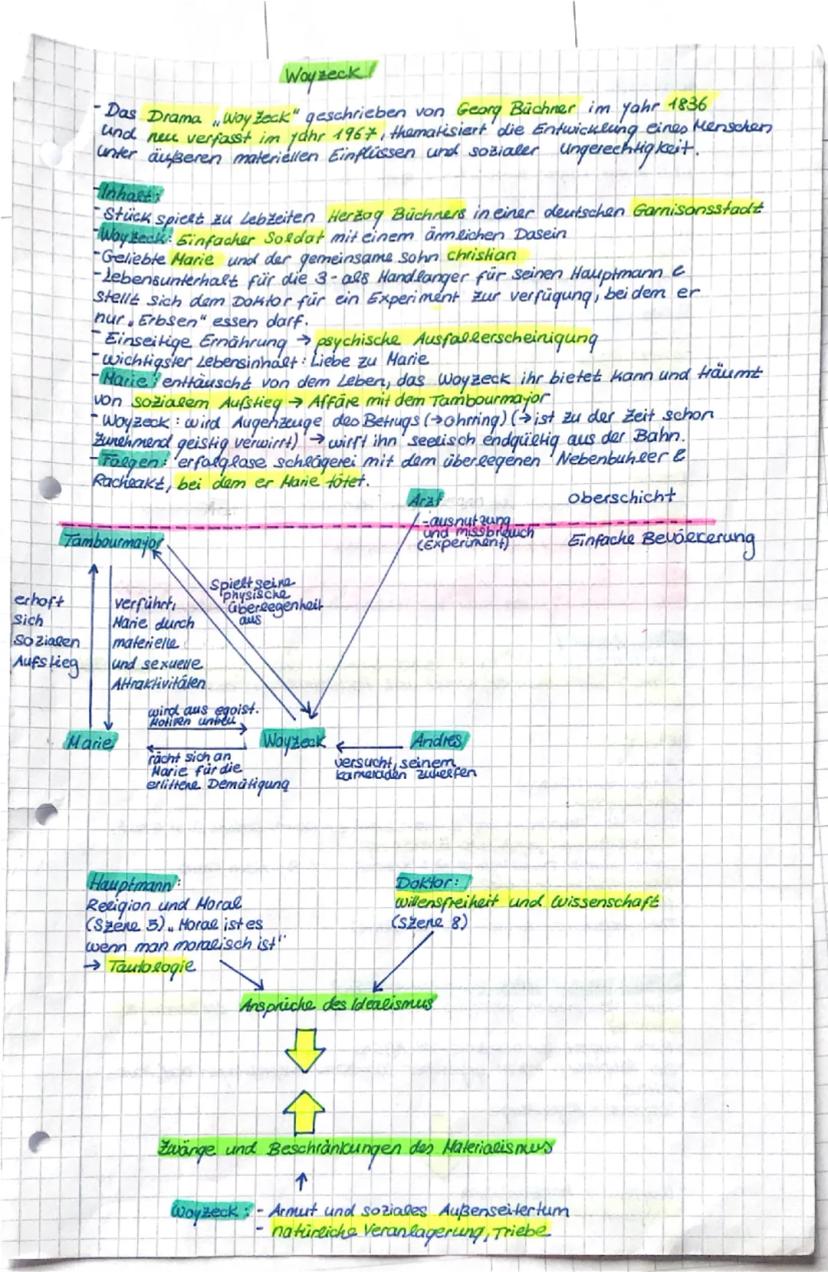 Woyzeck
- Das Drama „Woyzeck" geschrieben von Georg Büchner im Jahr 1836
und neu verfasst im Jahr 1967, thematisiert die Entwicklung eines Menschen
unter äußeren materiellen Einflüssen und sozialer Ungerechtigkeit.
- Inhalt:
- Stück spielt zu Lebzeiten Herzog Büchners in einer deutschen Garnisonsstadt
- Woyzeck: Einfacher Soldat mit einem ärmlichen Dasein
- Geliebte Marie und der gemeinsame Sohn Christian
- Lebensunterhalt für die 3 - als Handlanger für seinen Hauptmann &
stellt sich dem Doktor für ein Experiment zur verfügung, bei dem er
nur „Erbsen" essen darf.
- Einseitige Ernährung → psychische Ausfallerscheinigung
- Wichtigster Lebensinhalt: Liebe zu Marie
- Marie: enttäuscht von dem Leben, das Woyzeck ihr bietet kann und träumt
von sozialem Aufstieg → Affäre mit dem Tambourmajor
- Woyzeck: wird Augenzeuge des Betrugs (→ ohrring) (→ ist zu der Zeit schon
zunehmend geistig verwirrt) → wirft ihn seelisch endgültig aus der Bahn.
- Folgen: erfolglose schlägerei mit dem überlegenen Nebenbuhler &
Racheakt, bei dem er Marie tötet.
Arzt
Oberschicht
- ausnutzung
und missbrauch
(Experiment)
Tambourmajor
Einfache Bevölkerung
Spielt seine
physische
überlegenheit
aus
erhoft
sich
sozialen
Aufstieg
verführt,
Marie durch
materielle
und sexuelle
Attraktivitäten
wird aus egoist.
Motiven untreu
Marie
Woyzeck
Andres
rächt sich an
Marie für die
erlittene Demütigung
versucht, seinem
kameraden zu helfen
Hauptmann:
Religion und Moral
(Szene 5) „Moral ist es
wenn man moralisch ist"
→ Tautologie
Doktor:
Willensfreiheit und Wissenschaft
(Szene 8)
Ansprüche des Idealismus
Zwänge und Beschränkungen des Materialismus
Woyzeck: - Armut und soziales Außenseitertum
- natürliche Veranlagerung, Triebe